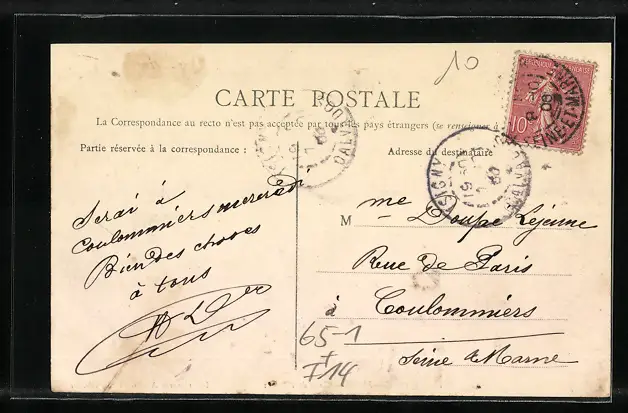 10
CARTE POSTALE
La Correspondance au recto n'est pas acceptée par tous les pays étrangers (se renseigner à
Partie réservée à la correspondance :
Adresse du destinataire
Serai à
Coulommiers mercredi
Bien des choses
à tous
M me Doupe Lejeune
Rue de Paris
à Coulommiers
Seine & Marne
65-1
+
T14
10
ISIGNY
CALV